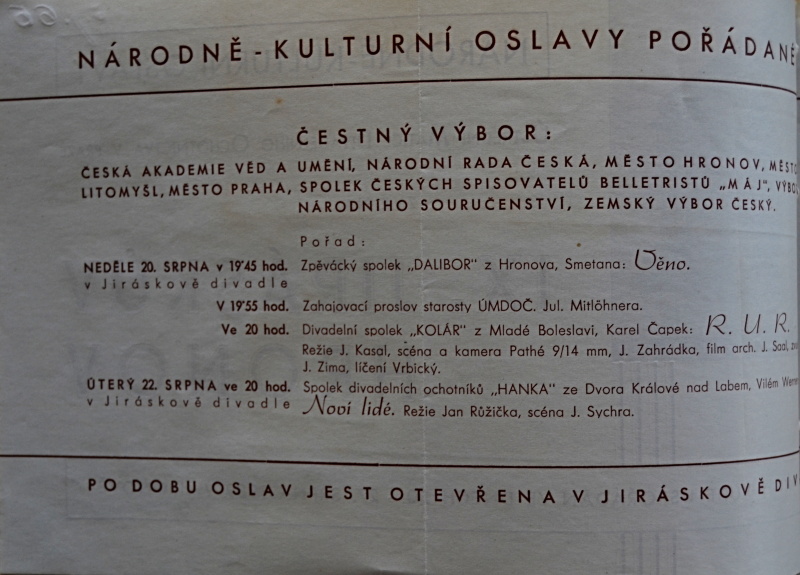 NÁRODNĚ - KULTURNÍ OSLAVY POŘÁDANÉ
ČESTNÝ VÝBOR:
ČESKÁ AKADEMIE VĚD A UMĚNÍ, NÁRODNÍ RADA ČESKÁ, MĚSTO HRONOV, MĚSTO
LITOMYŠL, MĚSTO PRAHA, SPOLEK ČESKÝCH SPISOVATELŮ BELLETRISTŮ „MÁJ", VÝBO
NÁRODNÍHO SOURUČENSTVÍ, ZEMSKÝ VÝBOR ČESKÝ.
Pořad:
NEDĚLE 20. SRPNA v 19˙45 hod. Zpěvácký spolek „DALIBOR" z Hronova, Smetana: Věno.
v Jiráskově divadle
V 19˙55 hod. Zahajovací proslov starosty ÚMDOČ. Jul. Mitlöhnera.
Ve 20 hod. Divadelní spolek „KOLÁR" z Mladé Boleslavi, Karel Čapek: R. U. R.
Režie J. Kasal, scéna a kamera Pathé 9/14 mm, J. Zahrádka, film arch. J. Saal,
J. Zima, líčení Vrbický.
ÚTERÝ 22. SRPNA ve 20 hod. Spolek divadelních ochotníků „HANKA" ze Dvora Králové nad Labem, Vilém Werne
v Jiráskově divadle Noví lidé. Režie Jan Růžička, scéna J. Sychra.
PO DOBU OSLAV JEST OTEVŘENA V JIRÁSKOVĚ DIV